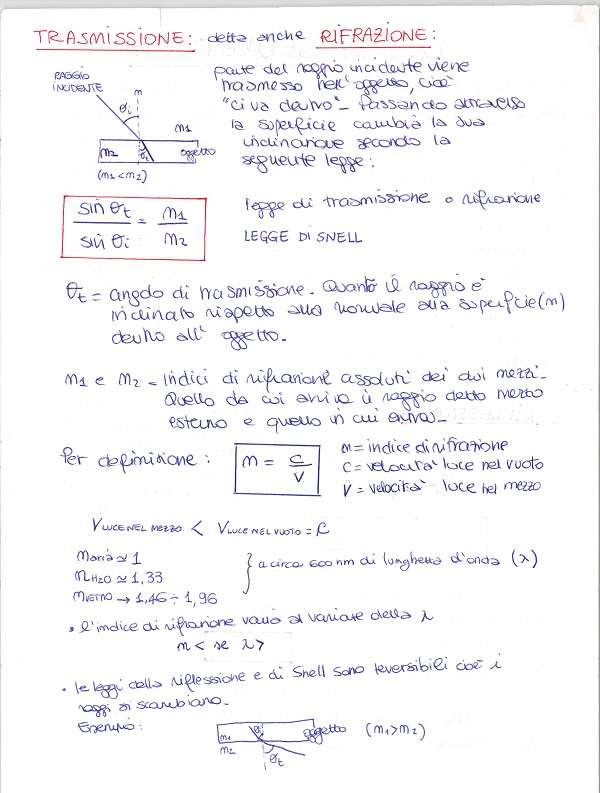 TRASMISSIONE: detta anche RIFRAZIONE:
RAGGIO
INCIDENTE
n
θi
n1
n2
θt
oggetto
(n1 < n2)
parte del raggio incidente viene
trasmesso nell'oggetto, cioè
"ci va dentro". Passando attraverso
la superficie cambia la sua
inclinazione secondo la
seguente legge:
sin θt / sin θi = n1 / n2
legge di trasmissione o rifrazione
LEGGE DI SNELL
θt = angolo di trasmissione. Quanto il raggio è
inclinato rispetto alla normale alla superficie (n)
dentro all'oggetto.
n1 e n2 = indici di rifrazione assoluti dei due mezzi.
Quello da cui arriva il raggio detto mezzo
esterno e quello in cui entra.
Per definizione:
n = c / v
n = indice di rifrazione
C = velocità luce nel vuoto
V = velocità luce nel mezzo
V LUCE NEL MEZZO < V LUCE NEL VUOTO = C
n aria ≃ 1
n H2O ≃ 1,33
n VETRO → 1,46 ÷ 1,96
} a circa 600 nm di lunghezza d'onda (λ)
• l'indice di rifrazione varia al variare della λ
n < se λ >
• le leggi della riflessione e di Snell sono reversibili cioè i
raggi si scambiano.
Esempio:
θi
n1
oggetto
(n1 > n2)
n2
θt